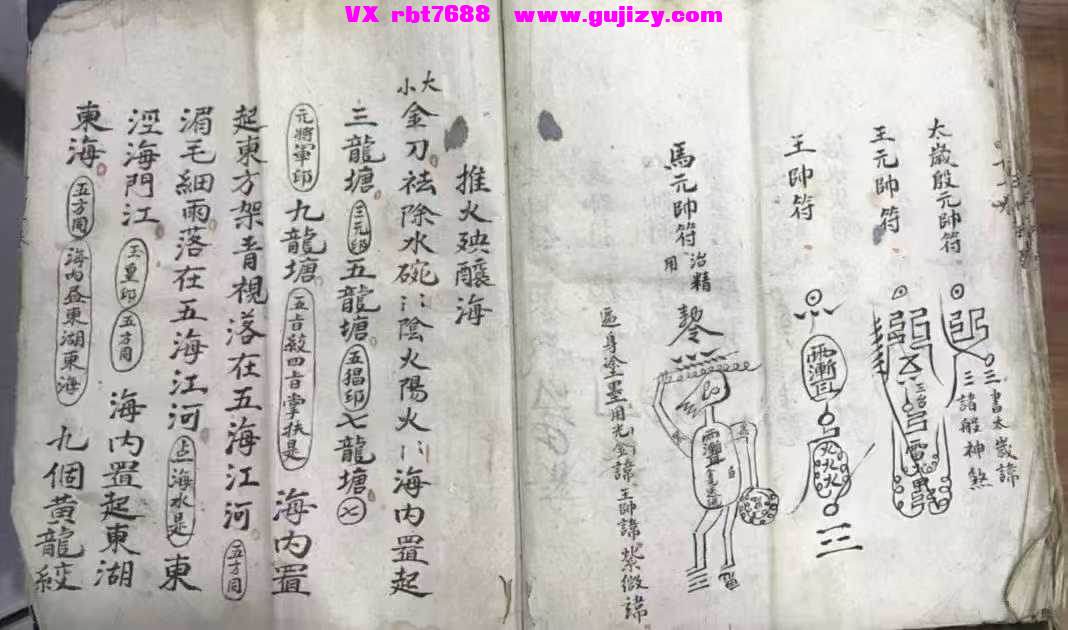 VX rbt7688 www.gujizy.com
太歲殷元帥符
三書太歲諱
三諸般神煞
王元帥符
王帥符
馬元帥符 治精用
遍身塗墨用 諱王帥諱紫微諱
推火殃醸海
大小金刀祛除水碗陰火陽火海內置起
三龍塘 三元印 五龍塘 五猖印 七龍塘 七
元將軍印 九龍塘 是 海內置
起東方架青視落在五海江河 五方同
湄毛細雨落在五海江河 占海水是 東
涇海門江 玉皇印 五方同 海內置起東湖
東海 五方同 海內 東湖東海 九個黃龍絞